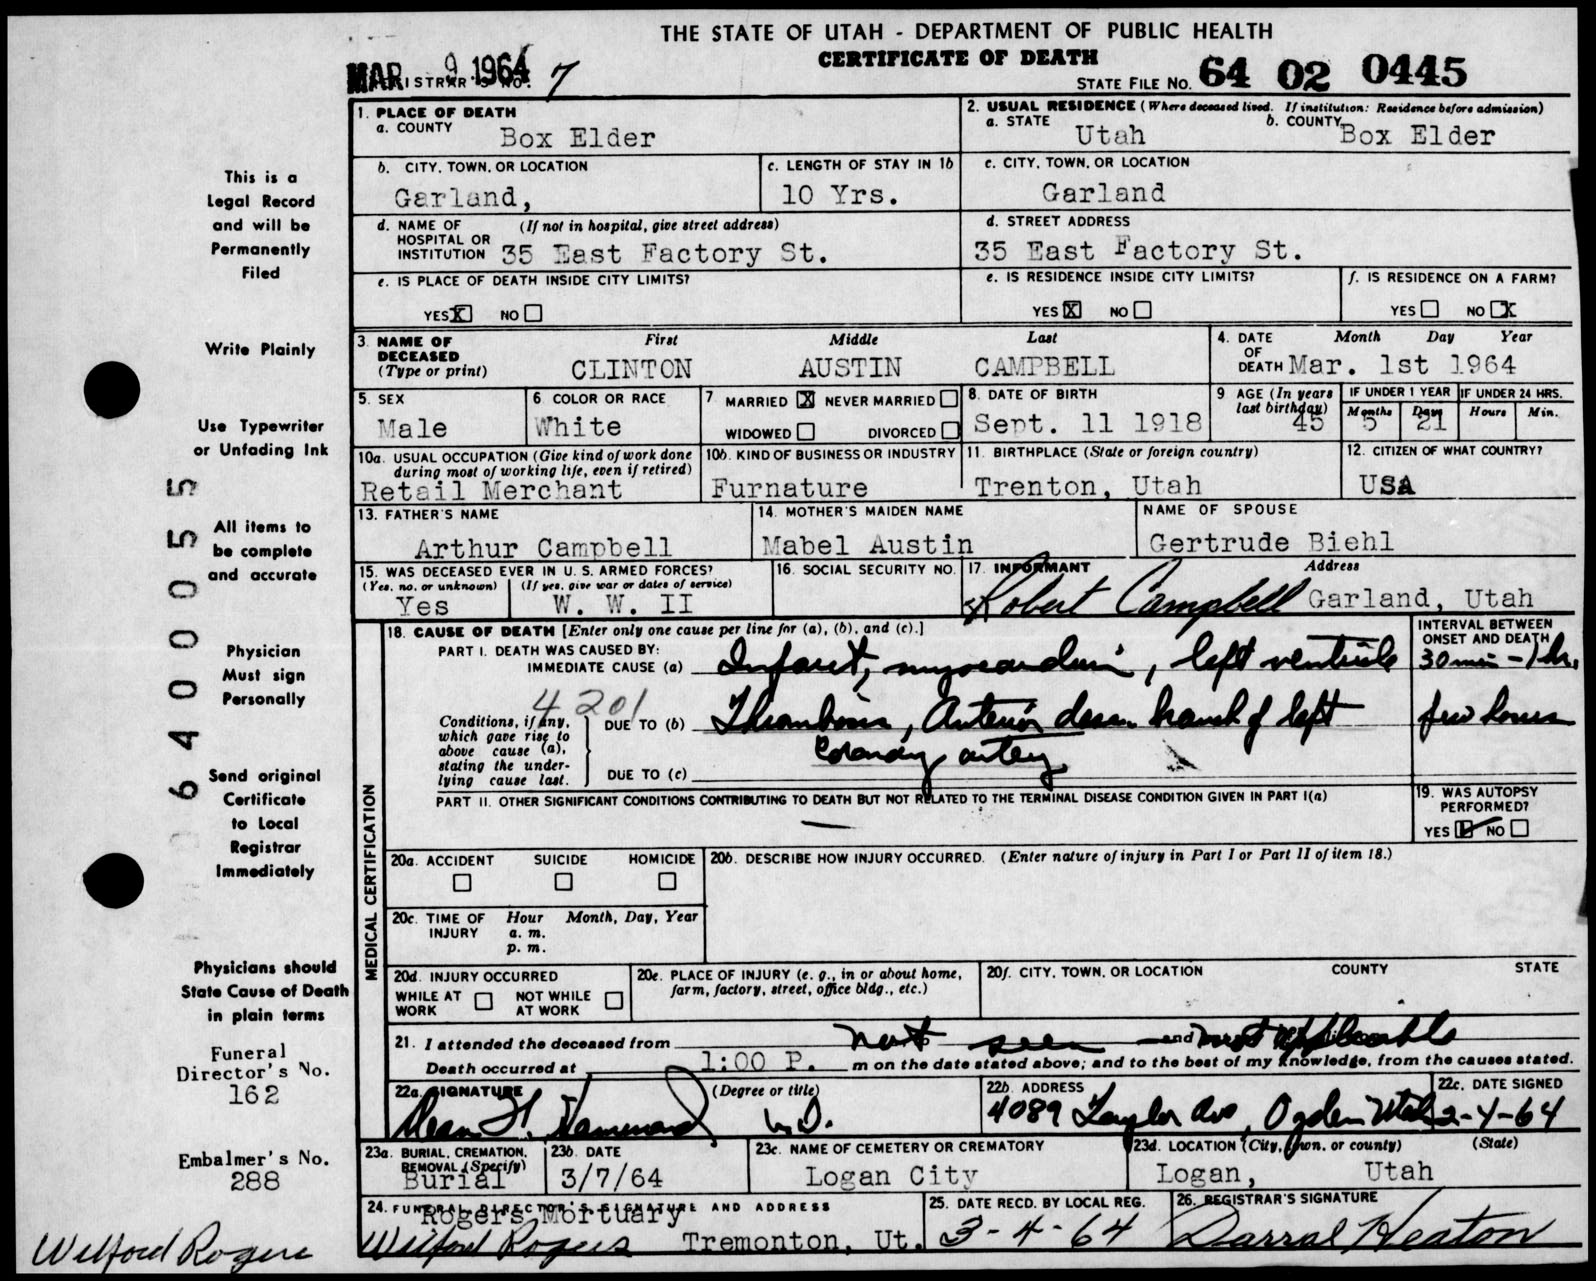 THE STATE OF UTAH - DEPARTMENT OF PUBLIC HEALTH
CERTIFICATE OF DEATH
MAR 9 1964 7
STATE FILE NO. 64 02 0445
1. PLACE OF DEATH
a. COUNTY Box Elder
2. USUAL RESIDENCE (Where deceased lived. If institution: Residence before admission)
a. STATE Utah b. COUNTY Box Elder
b. CITY, TOWN, OR LOCATION
Garland,
c. LENGTH OF STAY IN 1b
10 Yrs.
c. CITY, TOWN, OR LOCATION
Garland
d. NAME OF HOSPITAL OR INSTITUTION (If not in hospital, give street address)
35 East Factory St.
d. STREET ADDRESS
35 East Factory St.
e. IS PLACE OF DEATH INSIDE CITY LIMITS?
YES X NO
e. IS RESIDENCE INSIDE CITY LIMITS?
YES X NO
f. IS RESIDENCE ON A FARM?
YES NO X
3. NAME OF DECEASED (Type or print)
First Middle Last
CLINTON AUSTIN CAMPBELL
4. DATE OF DEATH Month Day Year
Mar. 1st 1964
5. SEX
Male
6. COLOR OR RACE
White
7. MARRIED X NEVER MARRIED
WIDOWED DIVORCED
8. DATE OF BIRTH
Sept. 11 1918
9 AGE (In years last birthday)
45
IF UNDER 1 YEAR IF UNDER 24 HRS.
Months Days Hours Min.
5 21
10a. USUAL OCCUPATION (Give kind of work done during most of working life, even if retired)
Retail Merchant
10b. KIND OF BUSINESS OR INDUSTRY
Furnature
11. BIRTHPLACE (State or foreign country)
Trenton, Utah
12. CITIZEN OF WHAT COUNTRY?
USA
13. FATHER'S NAME
Arthur Campbell
14. MOTHER'S MAIDEN NAME
Mabel Austin
NAME OF SPOUSE
Gertrude Biehl
15. WAS DECEASED EVER IN U. S. ARMED FORCES?
(Yes, no, or unknown) (If yes, give war or dates of service)
Yes W. W. II
16. SOCIAL SECURITY NO.
17. INFORMANT Address
Robert Campbell Garland, Utah
MEDICAL CERTIFICATION
18. CAUSE OF DEATH [Enter only one cause per line for (a), (b), and (c).]
INTERVAL BETWEEN ONSET AND DEATH
PART I. DEATH WAS CAUSED BY:
IMMEDIATE CAUSE (a) Infarct, myocardium, left ventricle 30 min - 1 hr.
4201
Conditions, if any, which gave rise to above cause (a), stating the underlying cause last.
DUE TO (b) Thrombosis, Anterior desc. branch of left few hours
coronary artery
DUE TO (c)
PART II. OTHER SIGNIFICANT CONDITIONS CONTRIBUTING TO DEATH BUT NOT RELATED TO THE TERMINAL DISEASE CONDITION GIVEN IN PART I(a)
19. WAS AUTOPSY PERFORMED?
YES NO
20a. ACCIDENT SUICIDE HOMICIDE
20b. DESCRIBE HOW INJURY OCCURRED. (Enter nature of injury in Part I or Part II of item 18.)
20c. TIME OF INJURY Hour Month, Day, Year
a. m.
p. m.
20d. INJURY OCCURRED
WHILE AT WORK NOT WHILE AT WORK
20e. PLACE OF INJURY (e. g., in or about home, farm, factory, street, office bldg., etc.)
20f. CITY, TOWN, OR LOCATION COUNTY STATE
21. I attended the deceased from not seen and not applicable
Death occurred at 1:00 P. m on the date stated above; and to the best of my knowledge, from the causes stated.
22a. SIGNATURE (Degree or title)
M.D.
22b. ADDRESS
4089 Taylor Ave, Ogden Utah
22c. DATE SIGNED
2-4-64
23a. BURIAL, CREMATION, REMOVAL (Specify)
Burial
23b. DATE
3/7/64
23c. NAME OF CEMETERY OR CREMATORY
Logan City
23d. LOCATION (City, town, or county) (State)
Logan, Utah
24. FUNERAL DIRECTOR'S SIGNATURE AND ADDRESS
Rogers Mortuary
Wilford Rogers Tremonton, Ut.
25. DATE RECD. BY LOCAL REG.
3-4-64
26. REGISTRAR'S SIGNATURE
Darral Heaton
This is a
Legal Record
and will be
Permanently
Filed
Write Plainly
Use Typewriter
or Unfading Ink
All items to
be complete
and accurate
Physician
Must sign
Personally
Send original
Certificate
to Local
Registrar
Immediately
Physicians should
State Cause of Death
in plain terms
Funeral
Director's No.
162
Embalmer's No.
288
Wilford Rogers
64 00055